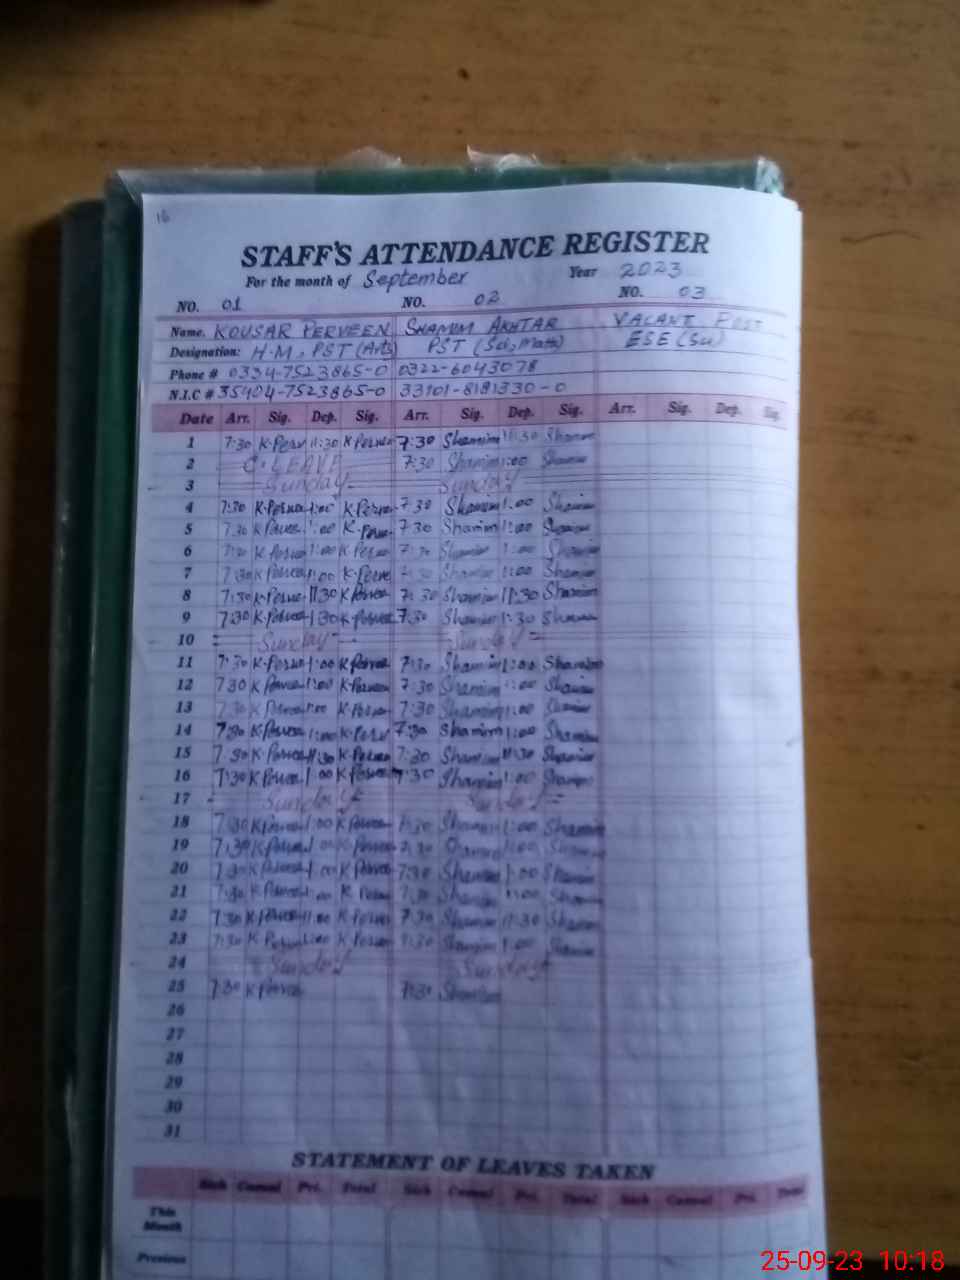 16
STAFF'S ATTENDANCE REGISTER
For the month of September Year 2023
NO. 01 NO. 02 NO. 03
Name. KOUSAR PERVEEN SHAMIM AKHTAR VACANT POST
Designation: H.M, PST (Arts) PST (Sci, Math) ESE (Sci)
Phone # 0334-7523865-0 0322-6043078
N.I.C # 35404-7523865-0 33101-8191330-0
Date Arr. Sig. Dep. Sig. Arr. Sig. Dep. Sig. Arr. Sig. Dep. Sig.
1 7:30 K.Perv 11:30 K Perveen 7:30 Shamim 11:30 Shamim
2 C. LEAVE 7:30 Shamim 1:00 Shamim
3 Sunday Sunday
4 7:30 K.Perveen 1:00 K.Perveen 7:30 Shamim 1:00 Shamim
5 7:30 K Perveen 1:00 K.Perveen 7:30 Shamim 1:00 Shamim
6 7:30 K Perveen 1:00 K.Perveen 7:30 Shamim 1:00 Shamim
7 7:30 K Perveen 1:00 K.Perveen 7:30 Shamim 1:00 Shamim
8 7:30 K.Perveen 11:30 K Perveen 7:30 Shamim 11:30 Shamim
9 7:30 K.Perveen 1:30 K.Perveen 7:30 Shamim 1:30 Shamim
10 Sunday Sunday
11 7:30 K.Perveen 1:00 K Perveen 7:30 Shamim 1:00 Shamim
12 7:30 K Perveen 1:00 K.Perveen 7:30 Shamim 1:00 Shamim
13 7:30 K Perveen 1:00 K.Perveen 7:30 Shamim 1:00 Shamim
14 7:30 K.Perveen 1:00 K.Perv 7:30 Shamim 1:00 Shamim
15 7:30 K.Perveen 11:30 K.Perveen 7:30 Shamim 11:30 Shamim
16 7:30 K Perveen 1:00 K Perveen 7:30 Shamim 1:00 Shamim
17 Sunday Sunday
18 7:30 K Perveen 1:00 K Perveen 7:30 Shamim 1:00 Shamim
19 7:30 K Perveen 1:00 K.Perveen 7:30 Shamim 1:00 Shamim
20 7:30 K Perveen 1:00 K Perveen 7:30 Shamim 1:00 Shamim
21 7:30 K Perveen 1:00 K Perveen 7:30 Shamim 1:00 Shamim
22 7:30 K Perveen 11:00 K Perveen 7:30 Shamim 11:30 Shamim
23 7:30 K Perveen 1:00 K Perveen 7:30 Shamim 1:00 Shamim
24 Sunday Sunday
25 7:30 K Perveen 7:30 Shamim
26
27
28
29
30
31
STATEMENT OF LEAVES TAKEN
Sick Casual Pri. Total Sick Casual Pri. Total Sick Casual Pri. Total
This
Month
Previous
25-09-23 10:18